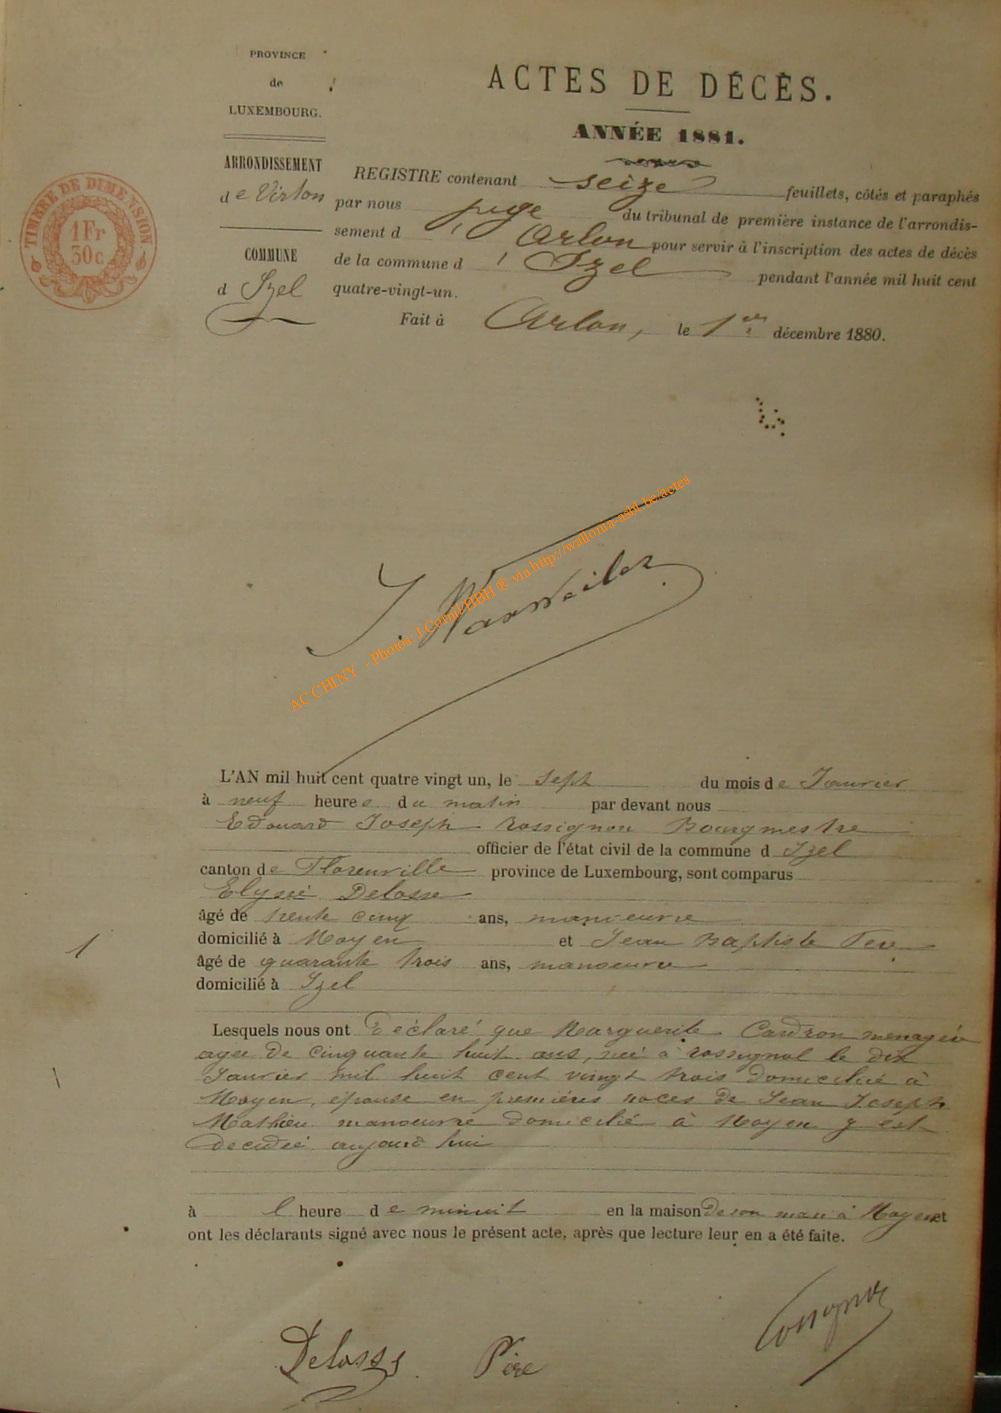 PROVINCE
de
LUXEMBOURG.
ARRONDISSEMENT
de Virton
COMMUNE
d Izel
TIMBRE DE DIMENSION
1 Fr
30 c
ACTES DE DÉCÈS.
ANNÉE 1881.
REGISTRE contenant seize feuillets, côtés et paraphés
par nous juge du tribunal de première instance de l'arrondis-
sement d'Arlon pour servir à l'inscription des actes de décès
de la commune d'Izel pendant l'année mil huit cent
quatre-vingt-un.
Fait à Arlon, le 1er décembre 1880.
AC CHINY - Photos J.Cornil HBH ® via http://wallonia-asbl.be/actes
1
L'AN mil huit cent quatre vingt un, le sept du mois de Janvier
à neuf heures du matin par devant nous
Edouard Joseph Rossignon Bourgmestre
officier de l'état civil de la commune d Izel
canton de Florenville province de Luxembourg, sont comparus
Elysée Delosse
âgé de trente cinq ans, manoeuvre
domicilié à Moyen et Jean Baptiste
âgé de quarante trois ans, manoeuvre
domicilié à Izel
Lesquels nous ont Déclaré que Marguerite Cardron menagère
agée de cinquante huit ans, née à rossignol le dix
Janvier mil huit cent vingt trois domiciliée à
Moyen, épouse en premières noces de Jean Joseph
Mathieu manoeuvre domicilié à Moyen y est
decedée aujourd hui
à l heure de minuit en la maison de son mari à Moyen et
ont les déclarants signé avec nous le présent acte, après que lecture leur en a été faite.
Delosse Père Rossignon